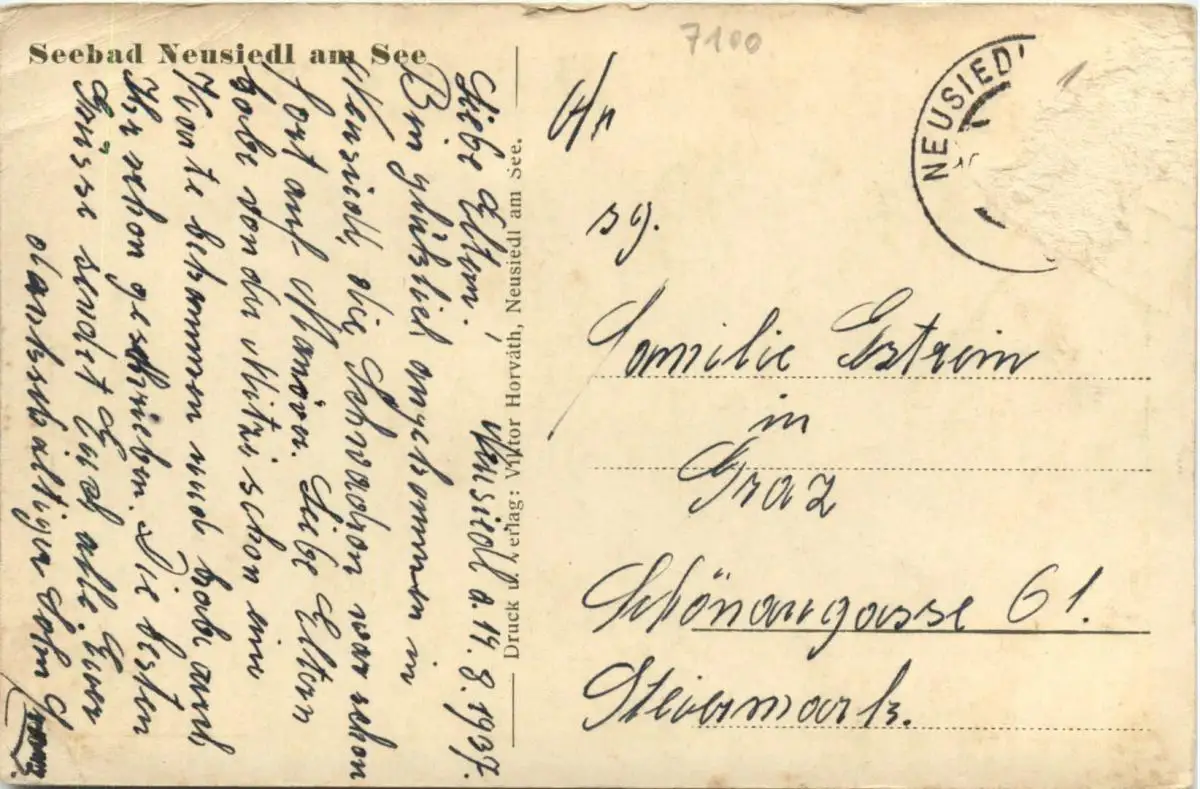 Seebad Neusiedl am See
7100
NEUSIEDL
Neusiedl a. 14. 8. 1937.
Liebe Eltern!
Bin glücklich angekommen in
Neusiedl, die Schwadron war schon
fort auf Manöver. Liebe Eltern
habe von der Mitzi schon ein
Karte bekommen und habe auch
Ihr schon geschrieben. Die besten
Grüsse sendet Euch alle Euer
dankschältiger Sohn
Druck u. Verlag: Viktor Horváth, Neusiedl am See.
An
sg.
Familie Gstrein
in
Graz
Schönaugasse 61.
Steiermark.